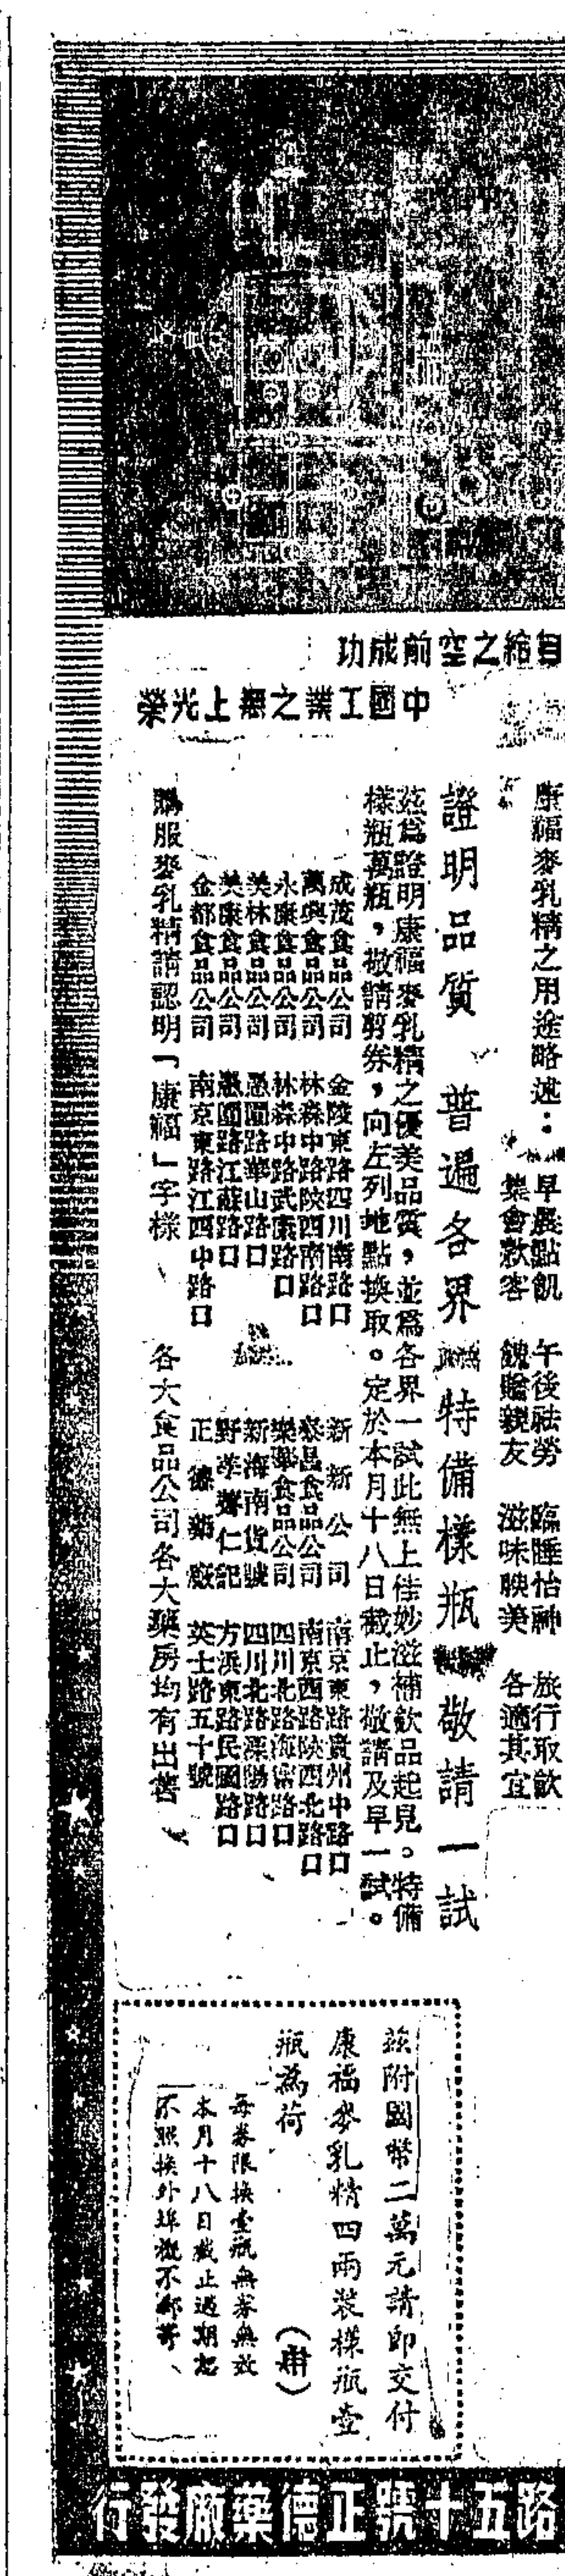 自給之空前成功
中國工業之無上光榮
康福麥乳精之用途略述：
早晨點飢　午後祛勞　臨睡怡神　旅行取飲
集會款客　餽贈親友　滋味腴美　各適其宜
證明品質　普遍各界　特備樣瓶　敬請一試
茲爲證明康福麥乳精之優美品質，並爲各界一試此無上佳妙滋補飲品起見。特備
樣瓶萬瓶，敬請剪券，向左列地點換取。定於本月十八日截止，敬請及早一試。
成茂食品公司　金陵東路四川南路口
萬興食品公司　林森中路陝西南路口
永康食品公司　林森中路武康路口
美林食品公司　愚園路華山路口
美康食品公司　愚園路江蘇路口
金都食品公司　南京東路江西中路口
新新公司　南京東路貴州中路口
泰昌食品公司　南京西路陝西北路口
樂華食品公司　四川北路海甯路口
新海南貨號　四川北路溧陽路口
野荸薺仁記　方浜東路民國路口
正德藥廠　英士路五十號
購服麥乳精請認明「康福」字樣　各大食品公司各大藥房均有出售
茲附國幣二萬元請即交付
康福麥乳精四兩裝樣瓶壹
瓶爲荷
（申）
每券限換壹瓶無券無效
本月十八日截止過期恕
不照換外埠概不郵寄
路五十號正德藥廠發行